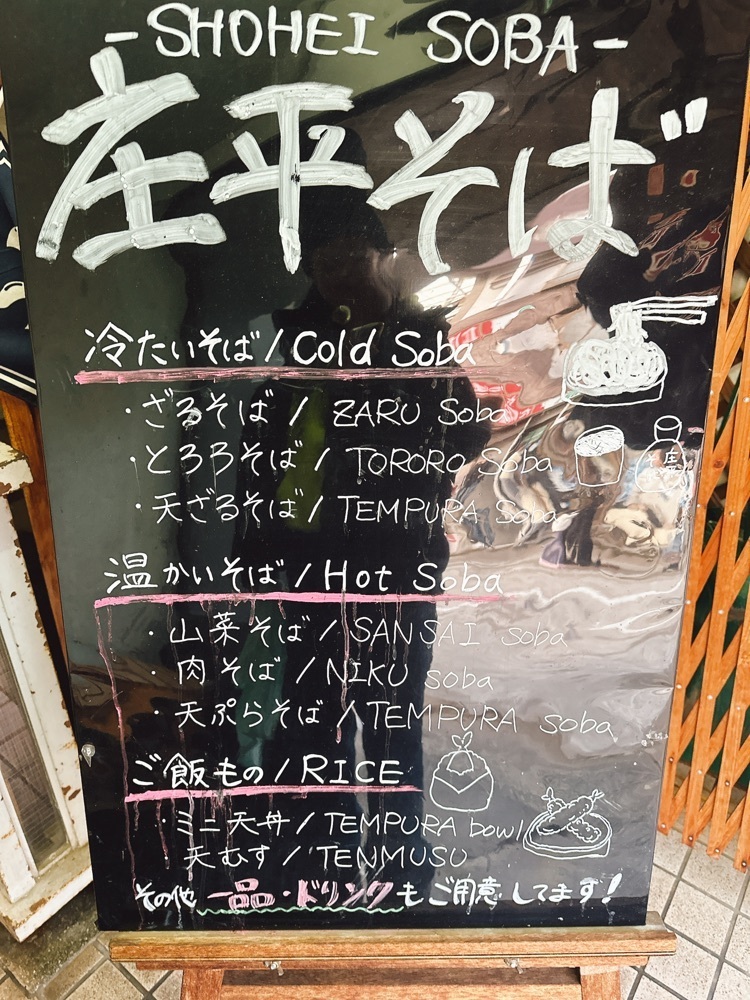 -SHOHEI SOBA-
庄平そば
冷たいそば/Cold Soba
・ざるそば/ZARU Soba
・とろろそば/TORORO Soba
・天ざるそば/TEMPURA Soba
温かいそば/Hot Soba
・山菜そば/SANSAI soba
・肉そば/NIKU soba
・天ぷらそば/TEMPURA soba
ご飯もの/RICE
・ミニ天丼/TEMPURA bowl
天むす/TENMUSU
その他 一品・ドリンクもご用意してます!